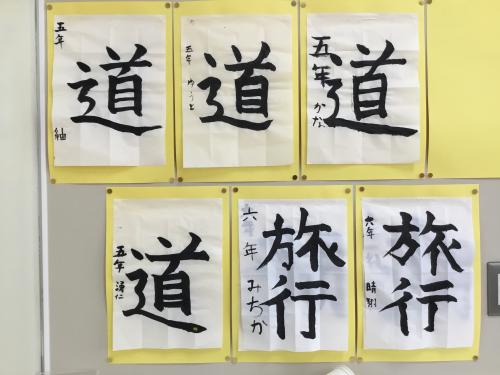 道
五年
紬
道
五年
ゆうと
道
五年
かな
道
五年
湧仁
旅行
六年
みちか
旅行
六年
晴翔